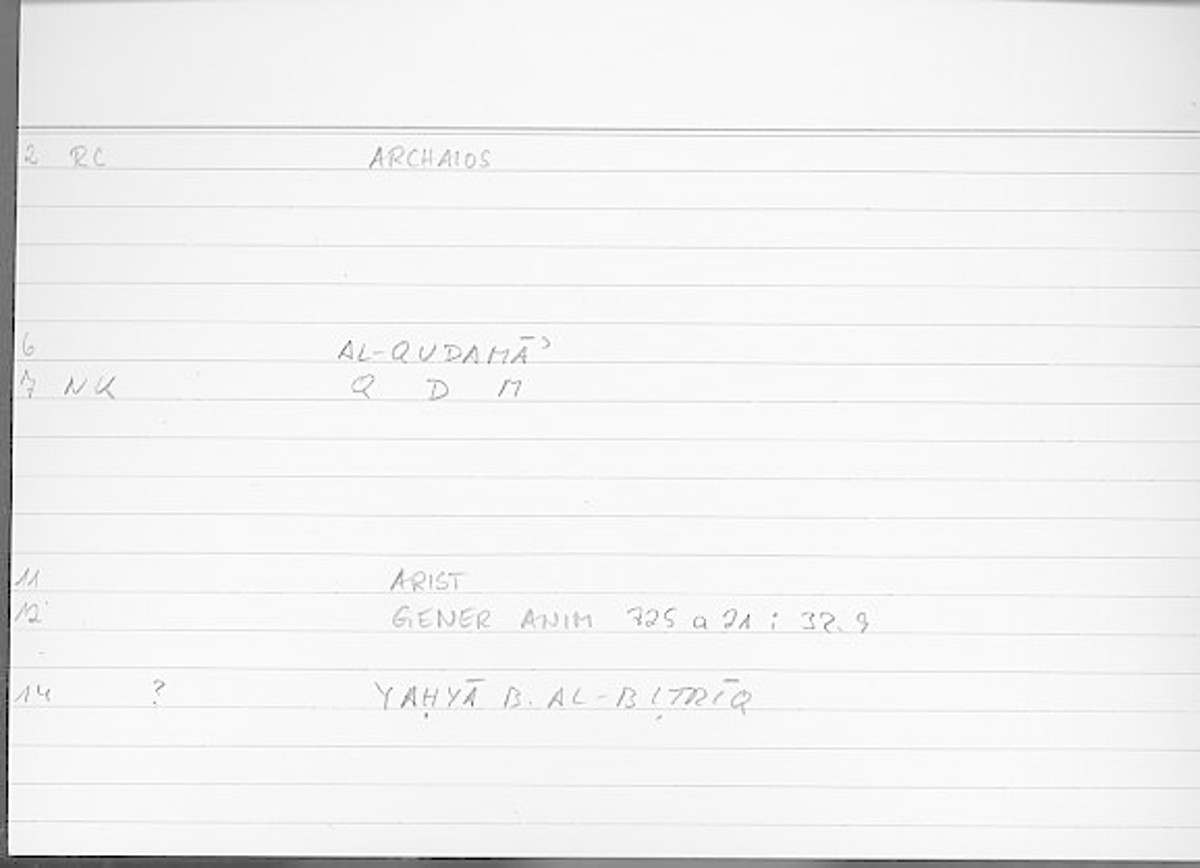 2 RC ARCHAIOS
6 AL-QUDAMĀʾ
7 NK Q D M
11 ARIST
12 GENER ANIM 725 a 21 : 32.9
14 ? YAḤYĀ B. AL-BIṬRĪQ